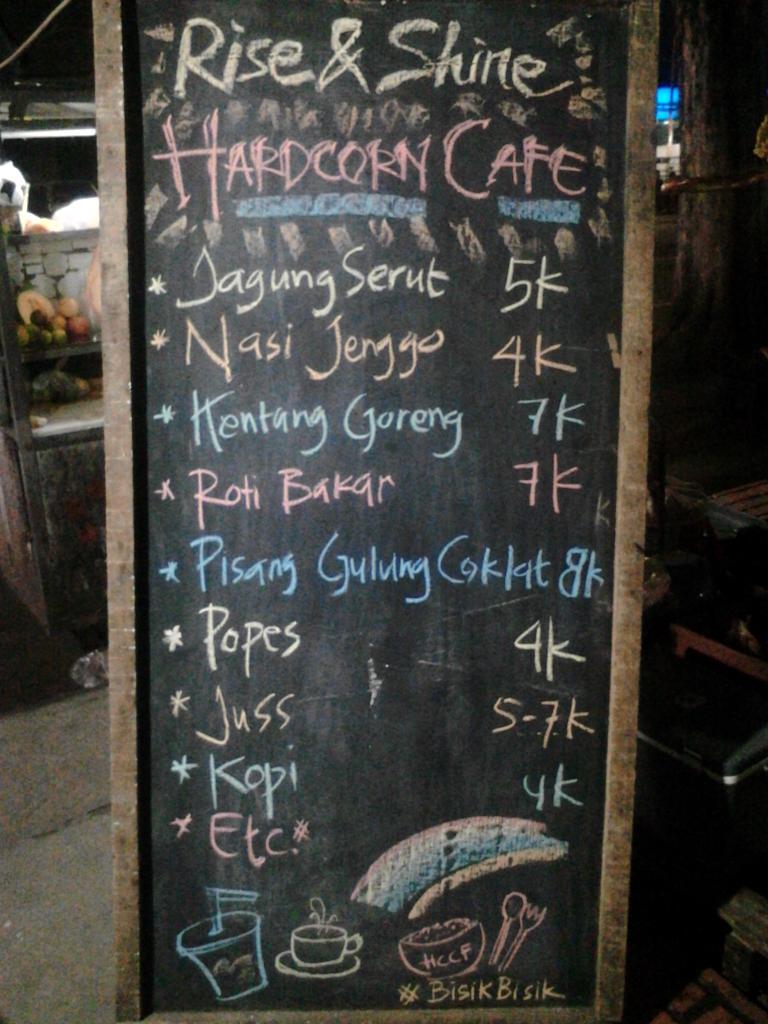 Rise & Shine
HARDCORN CAFE
* Jagung Serut 5K
* Nasi Jenggo 4K
* Kentang Goreng 7K
* Roti Bakar 7K
* Pisang Gulung Coklat 8k
* Popes 4K
* Juss 5-7K
* Kopi 4K
* Etc.#
HCCF
# BisikBisik